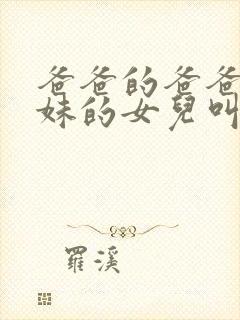 爸爸的爸爸
妹的女兒叫
羅溪